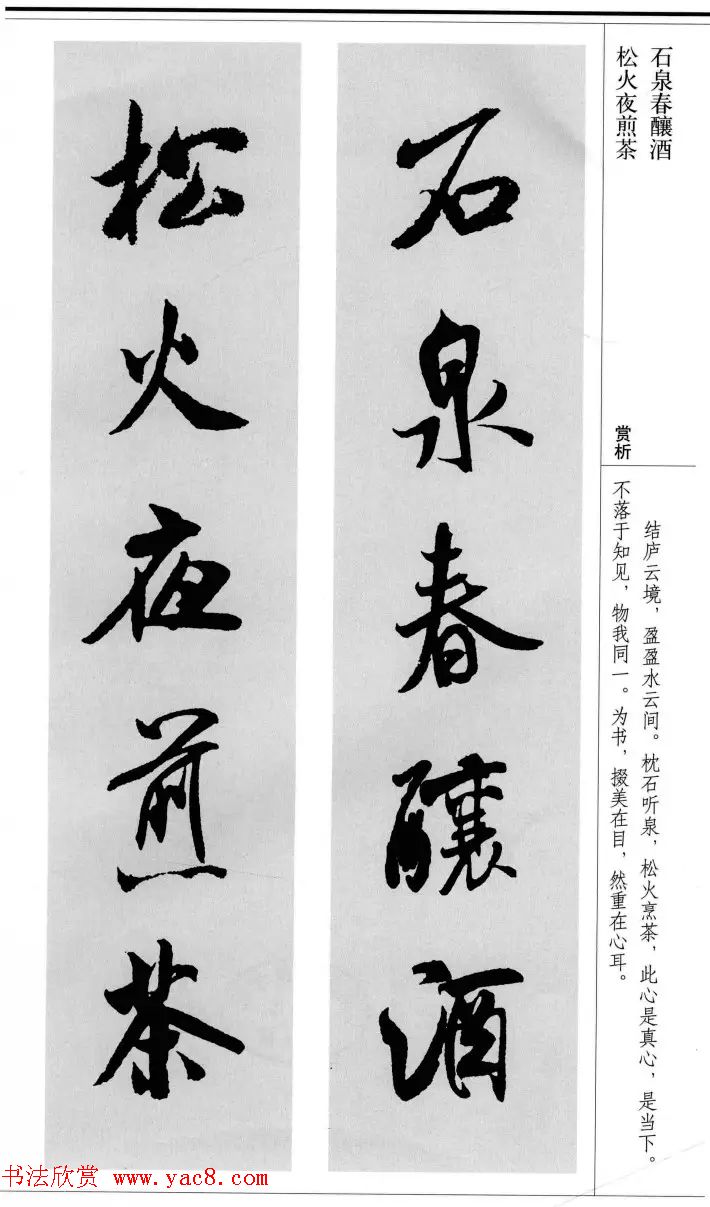 石泉春釀酒
松火夜煎茶
石泉春釀酒
松火夜煎茶
赏析
结庐云境，盈盈水云间。枕石听泉，松火烹茶，此心是真心，是当下。
不落于知见，物我同一。为书，掇美在目，然重在心耳。
书法欣赏 www.yac8.com